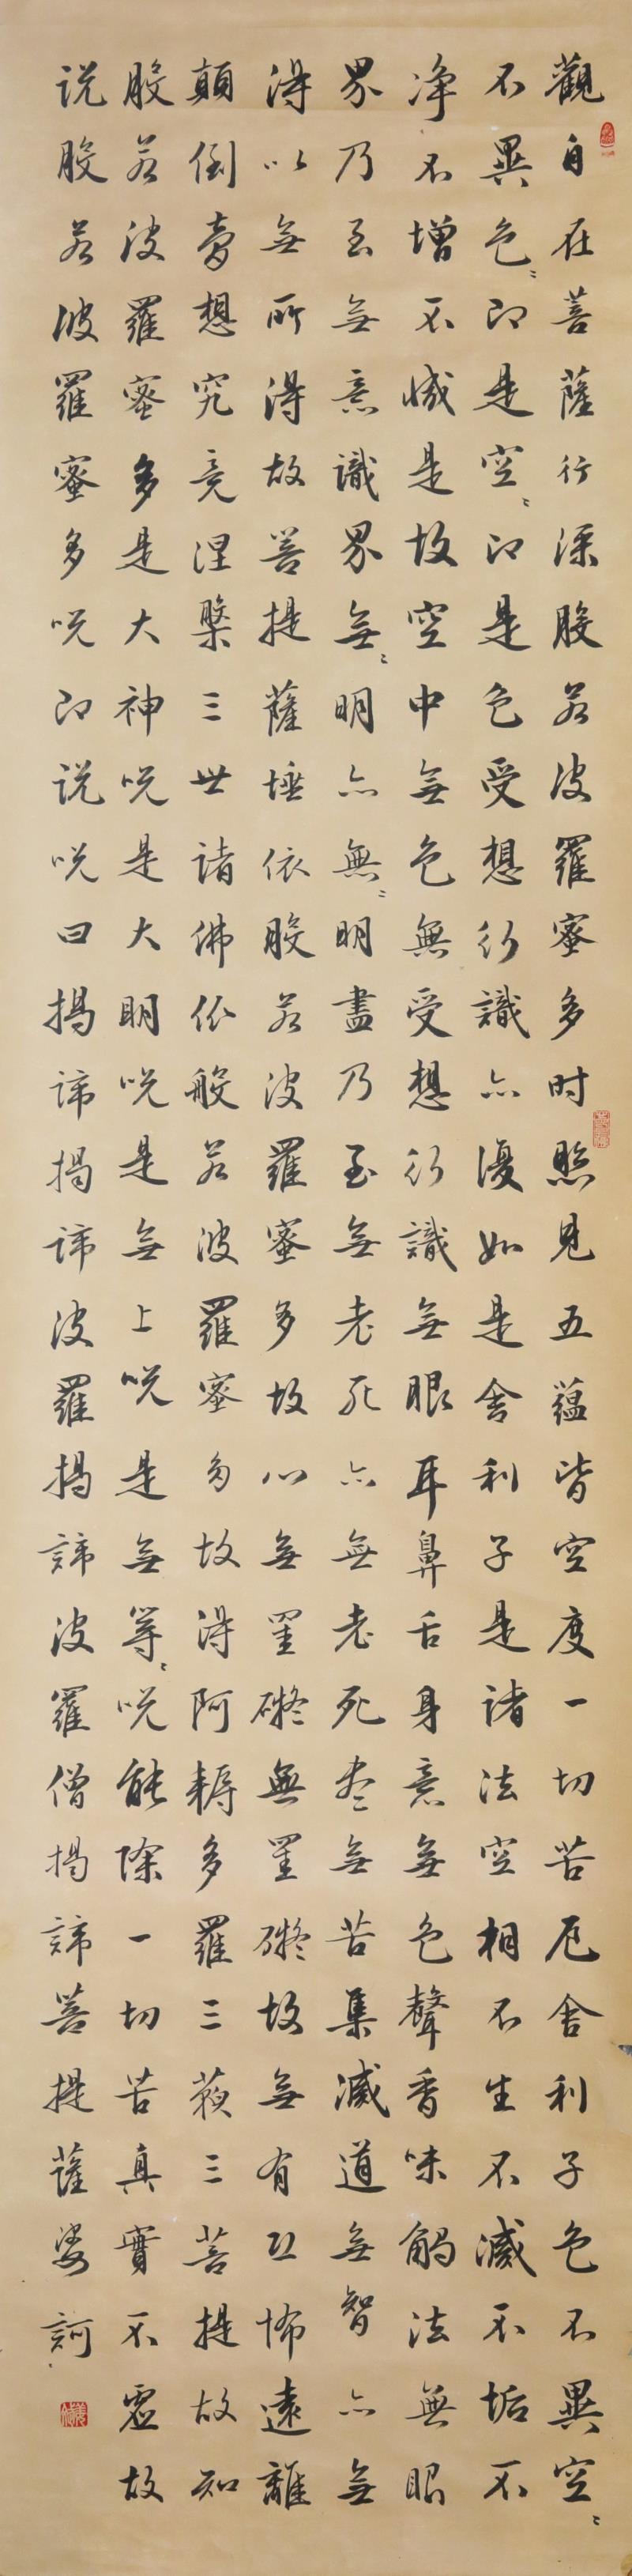 觀自在菩薩行深般若波羅蜜多时照見五蘊皆空度一切苦厄舍利子色不異空〻
不異色〻即是空〻即是色受想行識亦復如是舍利子是諸法空相不生不滅不垢不
净不增不减是故空中無色無受想行識無眼耳鼻舌身意無色聲香味觸法無眼
界乃至無意識界無〻明亦無〻明盡乃至無老死亦無老死尽無苦集滅道無智亦無
得以無所得故菩提薩埵依般若波羅蜜多故心無罣礙無罣礙故無有恐怖遠離
顛倒夢想究竟涅槃三世諸佛依般若波羅蜜多故得阿耨多羅三藐三菩提故知
般若波羅蜜多是大神咒是大明咒是無上咒是無等〻咒能除一切苦真實不虛故
说般若波羅蜜多咒即说咒曰揭諦揭諦波羅揭諦波羅僧揭諦菩提薩婆訶